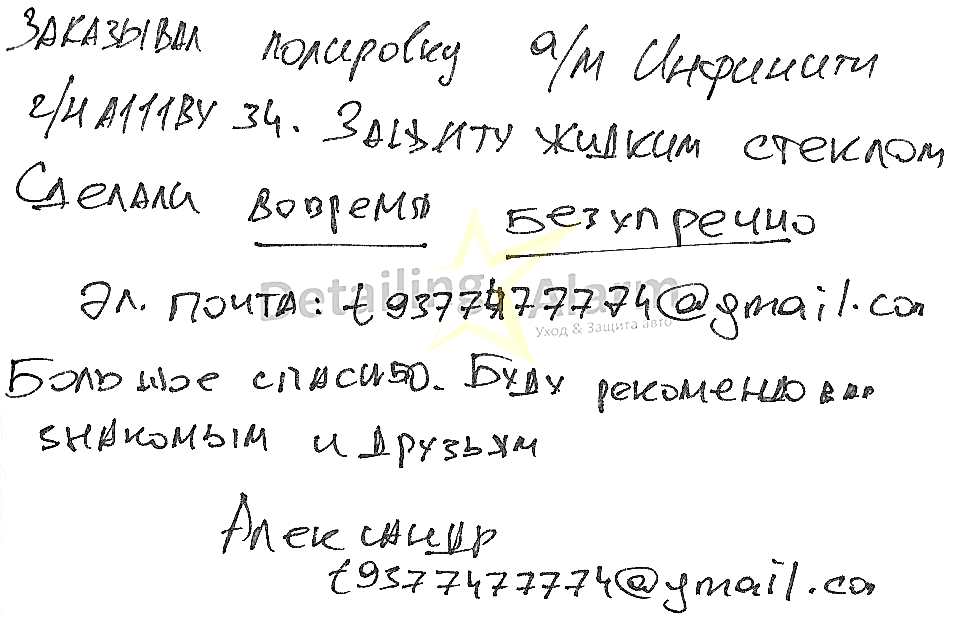 Заказывал полировку а/м Инфинити
г/н А111ВУ 34. Защиту жидким стеклом
Сделали вовремя безупречно
Detailing Alarm
Уход & Защита авто
Эл. почта: t9377477774@gmail.com
Большое спасибо. Буду рекомендовать
знакомым и друзьям
Александр
t9377477774@gmail.com